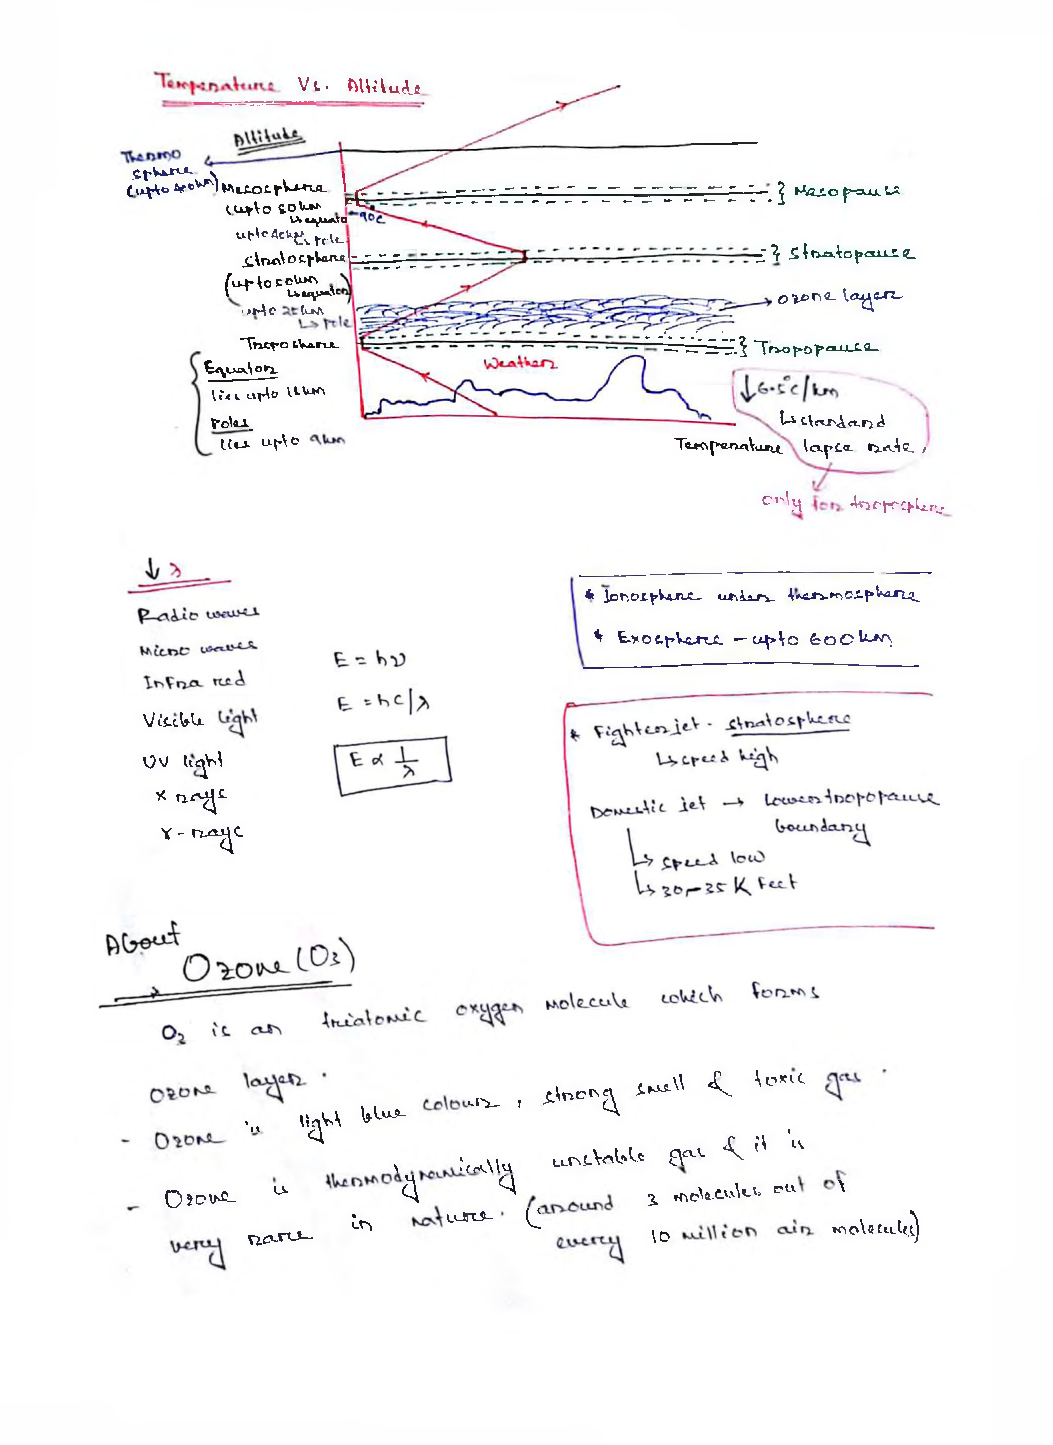 Temperature Vs. Altitude
Altitude
Thermo
sphere
(upto 400km)
Mesosphere
(upto 80km
↳ equator
-90c
upto
↳ pole
Mesopause
Stratosphere
(upto 50km
↳ equator)
upto 25km
↳ pole
Stratopause
ozone layer
Troposphere
Tropopause
Equator
lies upto 18km
Poles
lies upto 9km
Weather
Temperature
↓6.5°c/km
↳ standard
lapse rate
only for troposphere
↓ λ
Radio waves
Micro waves
Infra red
Visible light
UV light
X rays
γ-rays
E = hν
E = hc/λ
E ∝ 1/λ
* Ionosphere under thermosphere
* Exosphere - upto 600km
* Fighter jet - stratosphere
↳ speed high
Domestic jet → Lower tropopause
boundary
↳ speed low
↳ 30-35 K Feet
About
Ozone (O3)
O3 is an triatomic oxygen molecule which forms
ozone layer.
- Ozone is light blue colour, strong smell & toxic gas.
- Ozone is thermodynamically unstable gas & it is
very rare in nature. (around 3 molecules out of
every 10 million air molecules)